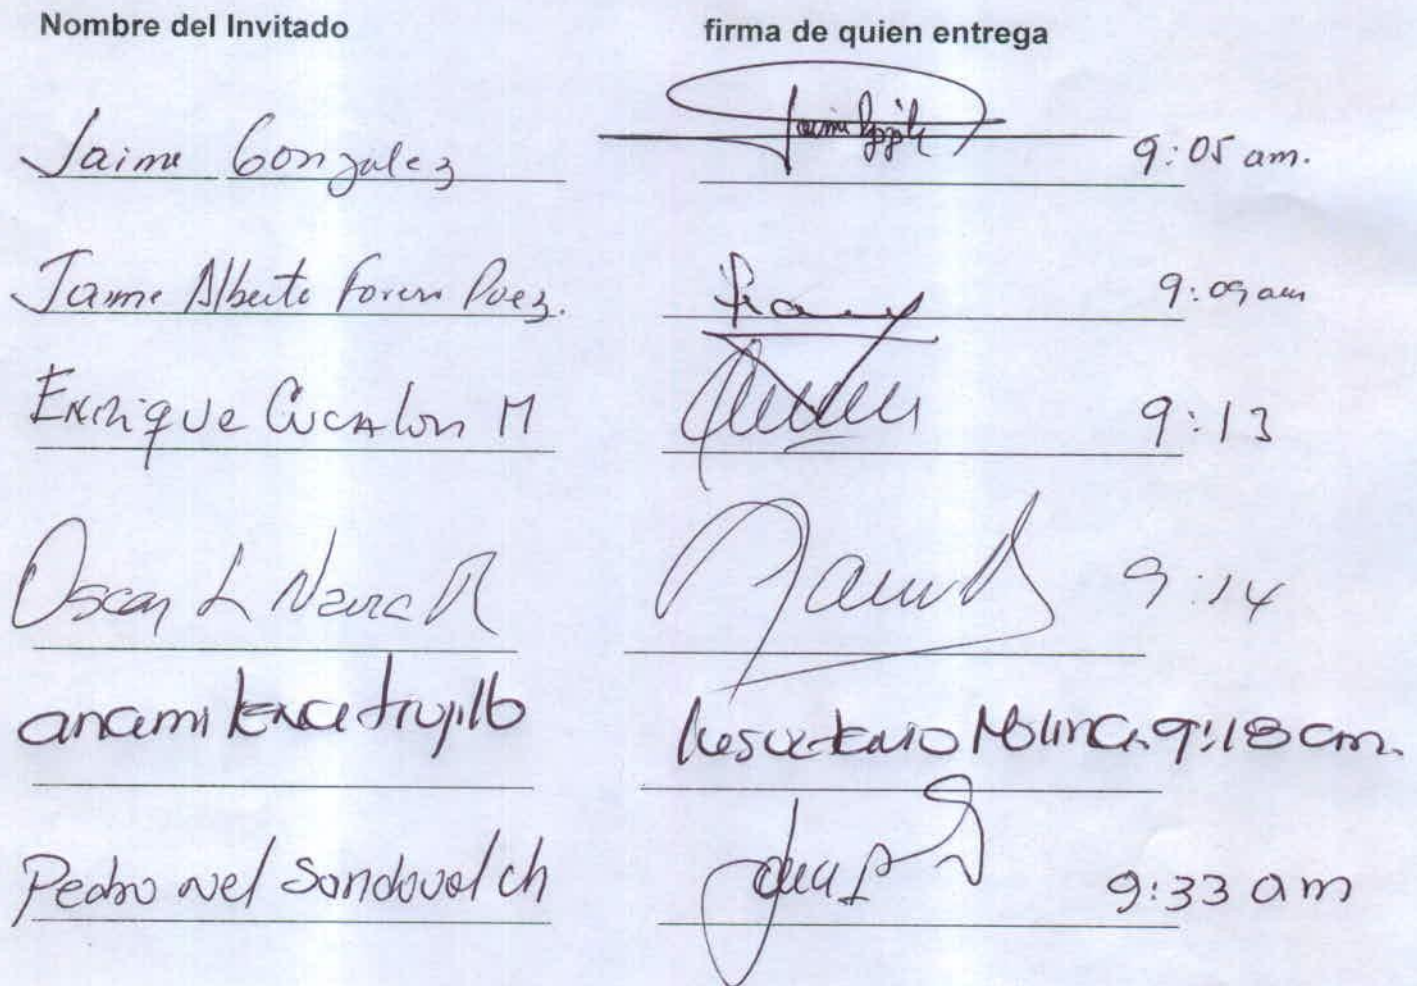 Nombre del Invitado firma de quien entrega
Jaime Gonzalez 9:05 am.
Jaime Alberto Forero Paez. 9:09 am
Enrique Cucalon M 9:13
Oscar L Neira R 9:14
anami tence trujillo Molina 9:18 am.
Pedro nel Sandoval ch 9:33 am